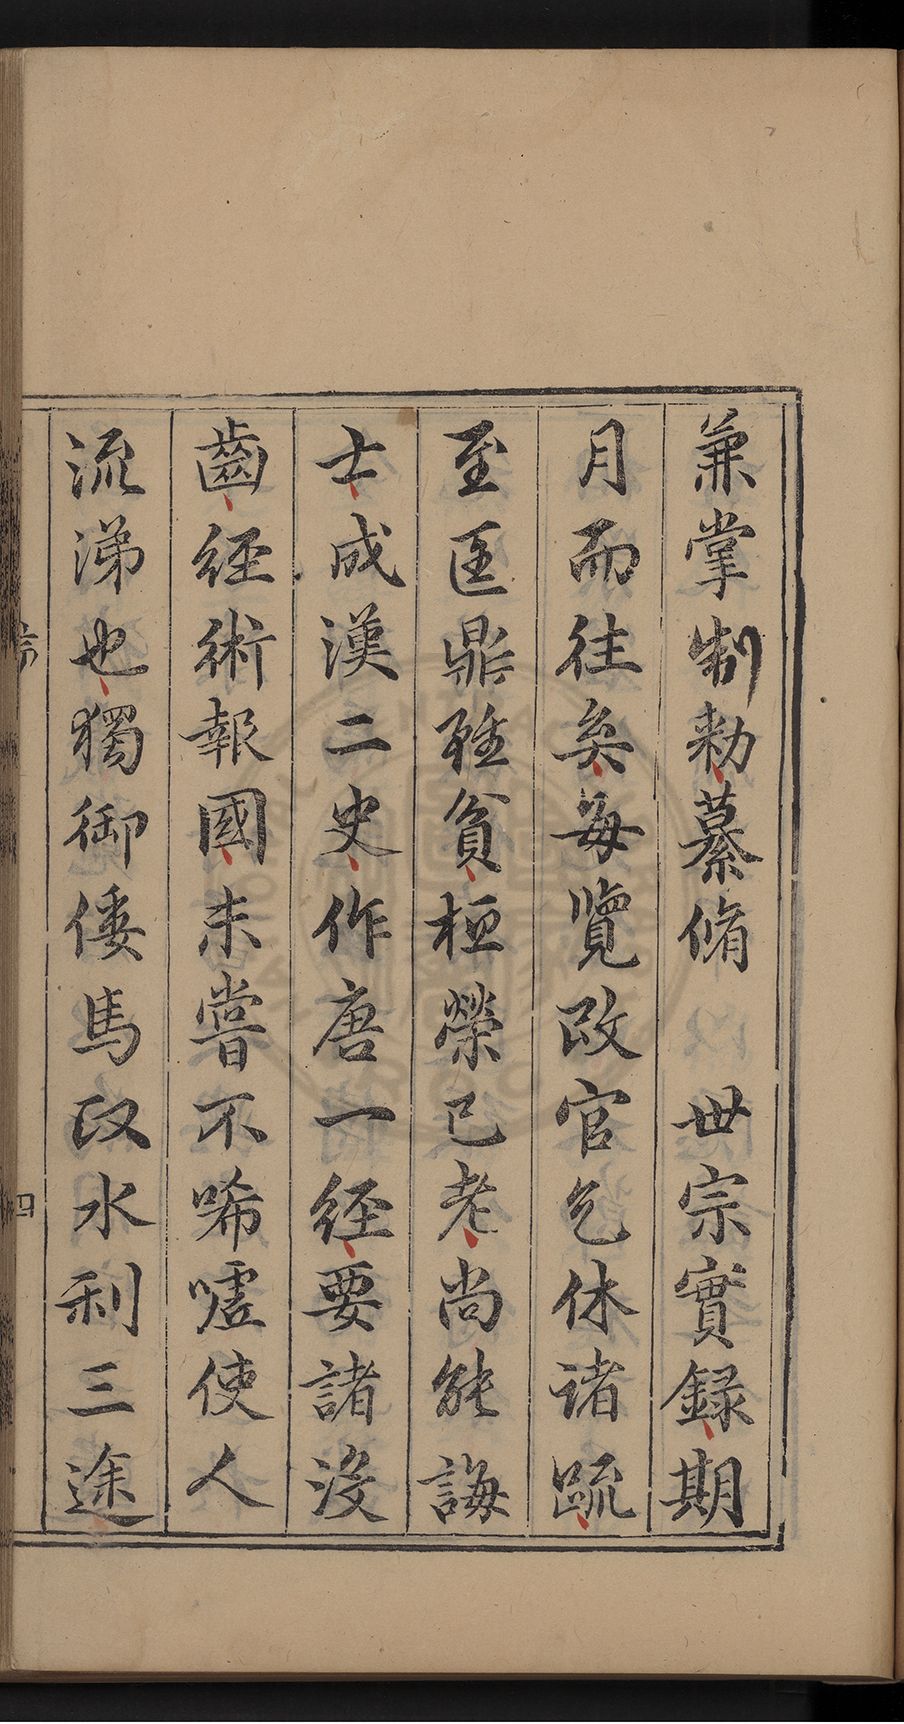 兼掌制勑纂脩　世宗實録期
月而往矣每覽改官乞休諸疏
至匡鼎雖貧桓榮已老尚能誨
士成漢二史作唐一經要諸沒
齒經術報國未嘗不唏噓使人
流涕也獨御倭馬政水利三途